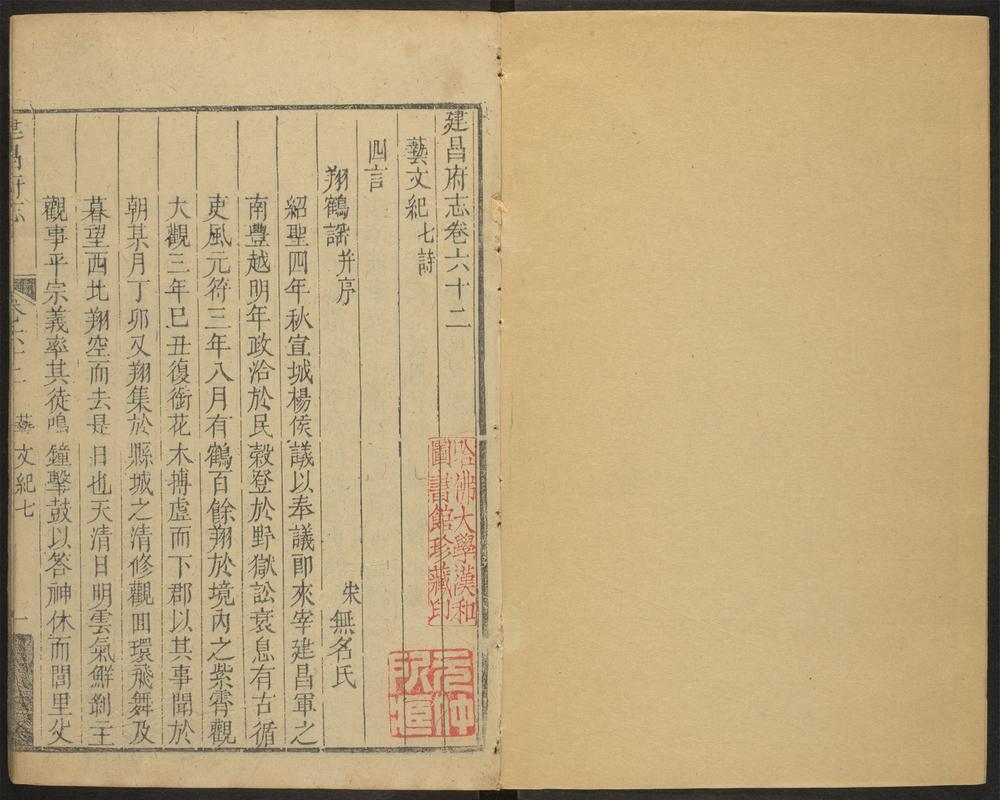 建昌府志卷六十二
藝文紀七詩
四言
翔鶴謠并序
宋無名氏
紹聖四年秋宣城楊侯議以奉議郎來宰建昌軍之
南豐越明年政洽於民穀登於野獄訟衰息有古循
吏風元符三年八月有鶴百餘翔於境內之紫霄觀
大觀三年巳丑復銜花木搏虛而下郡以其事聞於
朝某月丁卯又翔集於縣城之清修觀回環飛舞及
暮望西北翔空而去是日也天清日明雲氣鮮剝王
觀事平宗義率其徒鳴鐘擊鼓以答神休而閭里父
建昌府志
卷六十二
藝文紀七
一
哈佛大學漢和
圖書館珍藏印